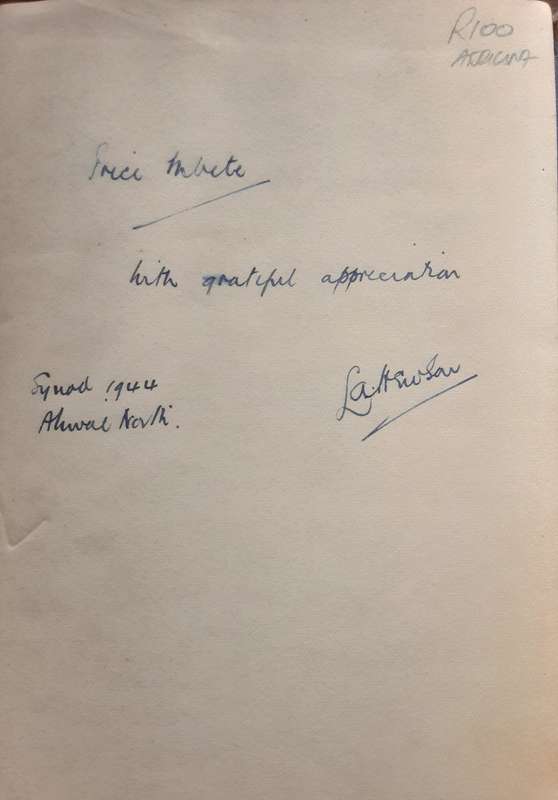 R100
AFRICANA
Mbete
With grateful appreciation
L.A. Hewson
Synod 1944
Aliwal North.